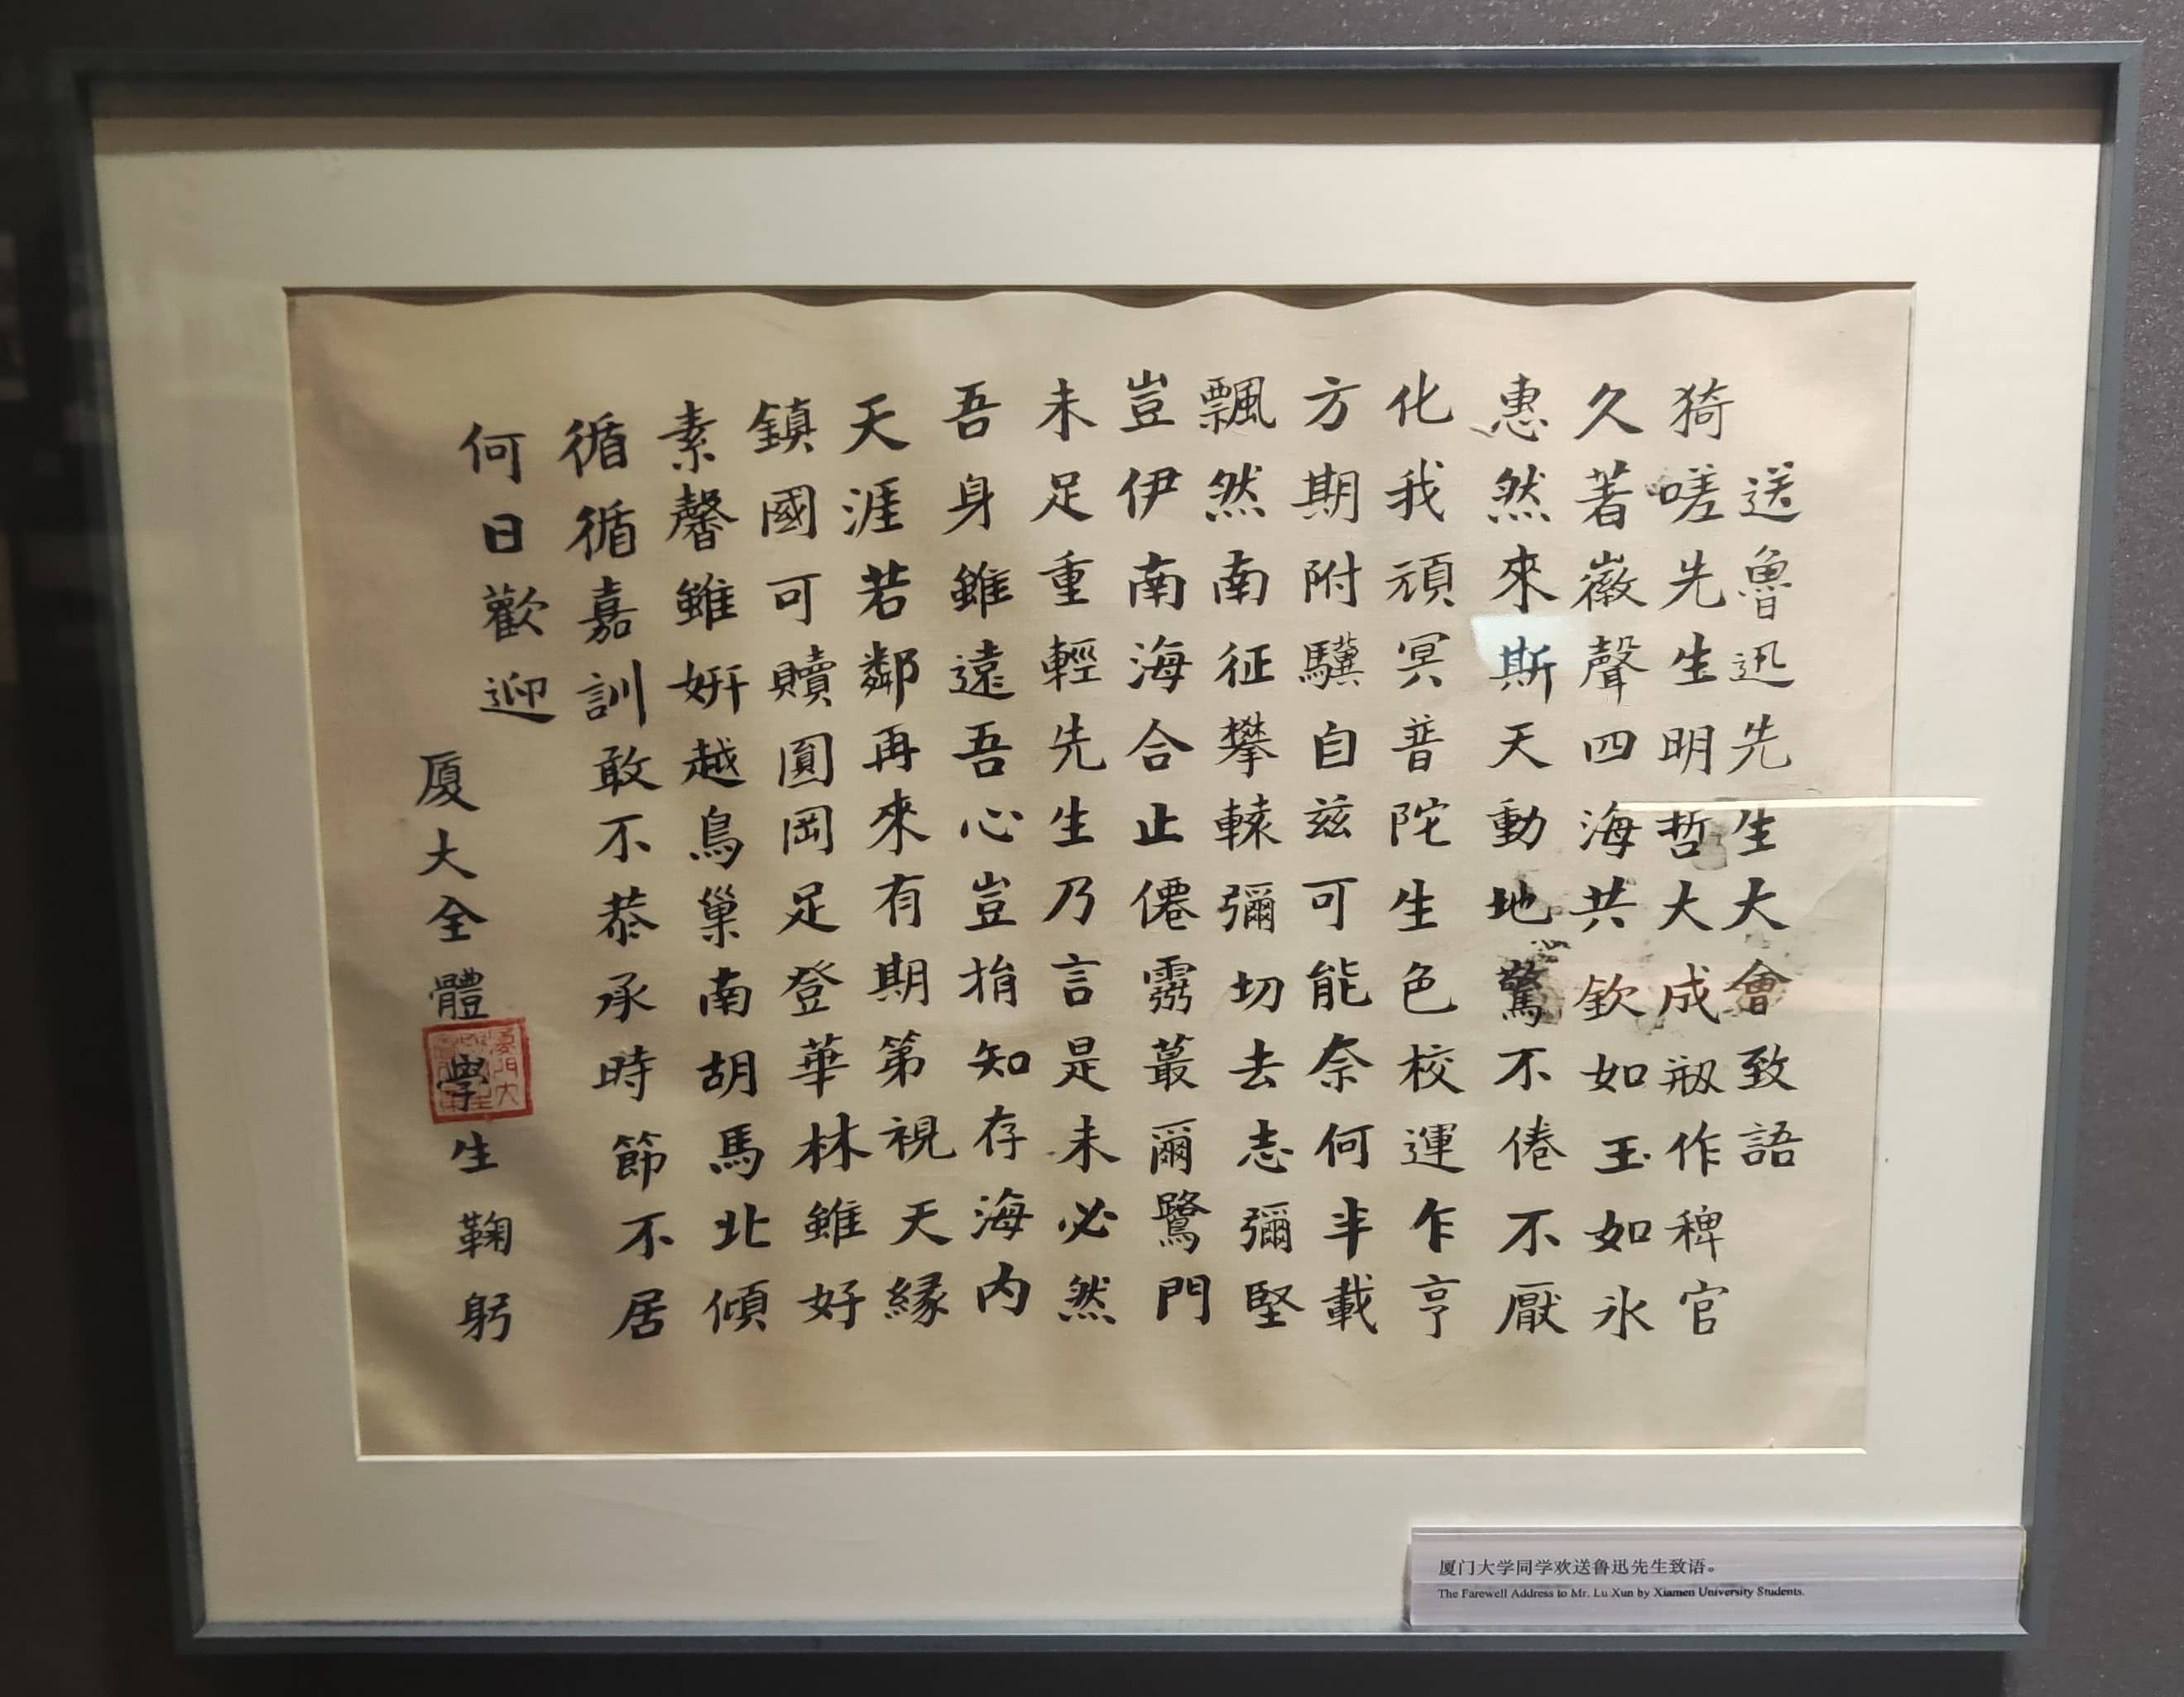 送魯迅先生大會致語
猗嗟先生明哲大成剏作稗官
久著徽聲四海共欽如玉如冰
惠然來斯天動地驚不倦不厭
化我頑冥普陀生色校運乍亨
方期附驥自兹可能奈何半載
飄然南征攀轅彌切去志彌堅
豈伊南海合止僊靈蕞爾鷺門
未足重輕先生乃言是未必然
吾身雖遠吾心豈捐知存海内
天涯若鄰再來有期第視天緣
鎮國可贖圓岡足登華林雖好
素馨雖妍越鳥巢南胡馬北傾
循循嘉訓敢不恭承時節不居
何日歡迎
厦大全體學生鞠躬
厦门大学同学欢送鲁迅先生致语。
The Farewell Address to Mr. Lu Xun by Xiamen University Students.